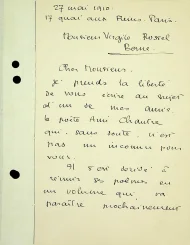 27 mai 1910.
17 quai aux Fleurs. Paris.
Monsieur Virgile Rossel
Berne
Cher Monsieur,
je prends la liberté
de vous écrire au sujet
d'un de mes amis
le poète Ami Chantre
qui, sans doute, n'est
pas un inconnu pour
vous.
Il s'est décidé à
réunir ses poèmes en
un volume qui va
paraître prochainement